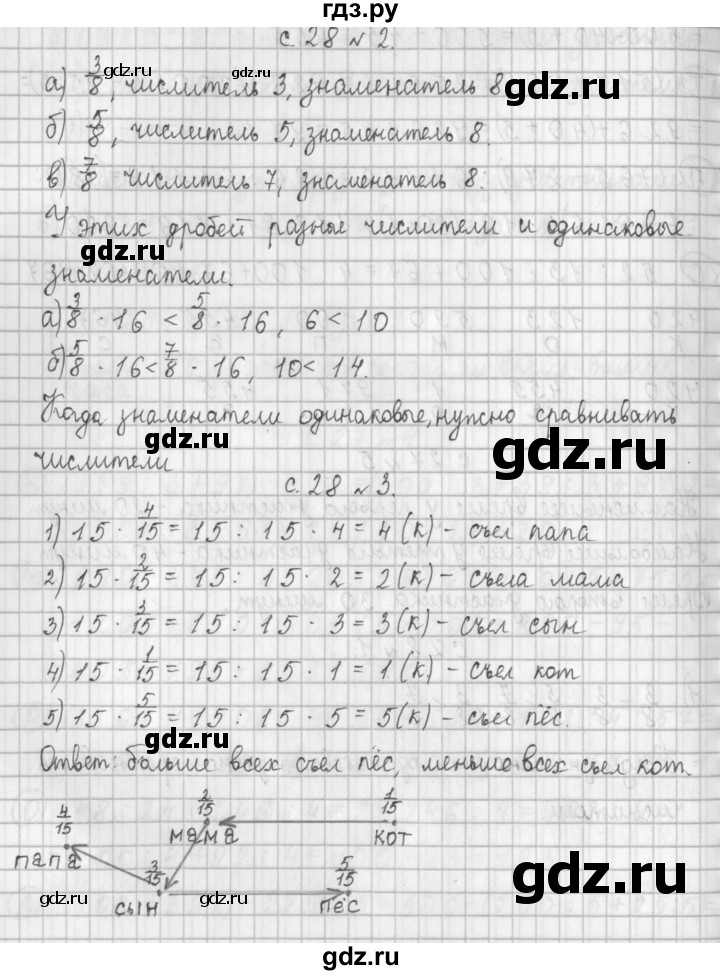 гдз.ру
с. 28 № 2.
а) 3/8, числитель 3, знаменатель 8
б) 5/8, числитель 5, знаменатель 8.
в) 7/8 числитель 7, знаменатель 8.
У этих дробей разные числители и одинаковые
знаменатели.
а) 3/8 · 16 < 5/8 · 16, 6 < 10
б) 5/8 · 16 < 7/8 · 16, 10 < 14.
Когда знаменатели одинаковые, нужно сравнивать
числители
с. 28 № 3.
1) 15 · 4/15 = 15 : 15 · 4 = 4 (к) - съел папа
2) 15 · 2/15 = 15 : 15 · 2 = 2 (к) - съела мама
3) 15 · 3/15 = 15 : 15 · 3 = 3 (к) - съел сын
4) 15 · 1/15 = 15 : 15 · 1 = 1 (к) - съел кот
5) 15 · 5/15 = 15 : 15 · 5 = 5 (к) - съел пёс.
Ответ: больше всех съел пёс, меньше всех съел кот.
4/15 2/15 1/15
папа мама кот
3/15 5/15
сын пёс
gdz.ru
gdz.ru
gdz.ru
gdz.ru
gdz.ru
gdz.ru
gdz.ru
gdz.ru
gdz.ru
gdz.ru
gdz.ru
gdz.ru
gdz.ru